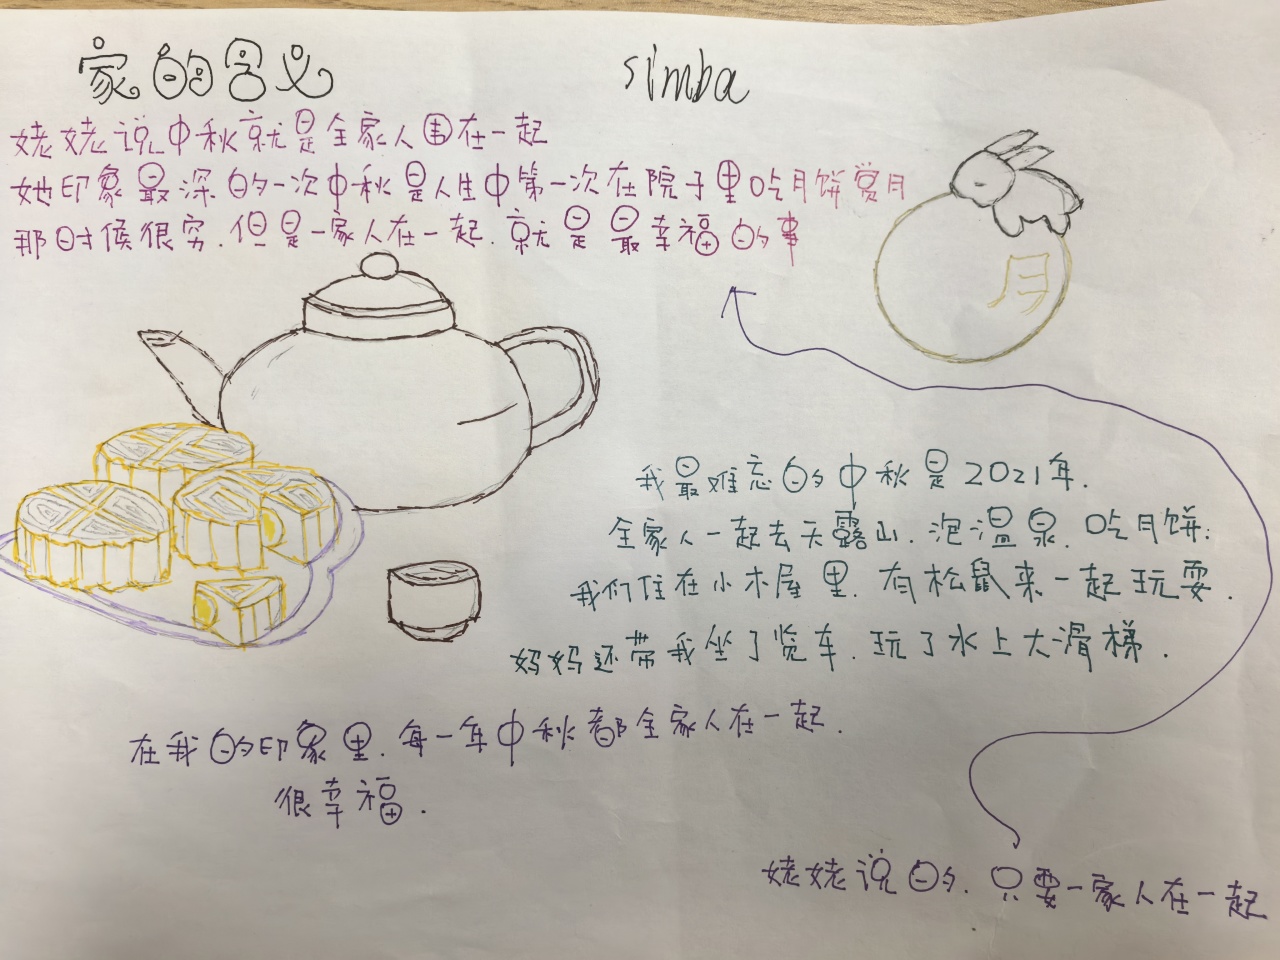 家的含义
simba
姥姥说中秋就是全家人围在一起
她印象最深的一次中秋是人生中第一次在院子里吃月饼赏月
那时候很穷.但是一家人在一起.就是最幸福的事
月
我最难忘的中秋是2021年.
全家人一起去天露山.泡温泉.吃月饼;
我们住在小木屋里.有松鼠来一起玩耍.
妈妈还带我坐了览车.玩了水上大滑梯.
在我的印象里.每一年中秋都全家人在一起.
很幸福.
姥姥说的.只要一家人在一起